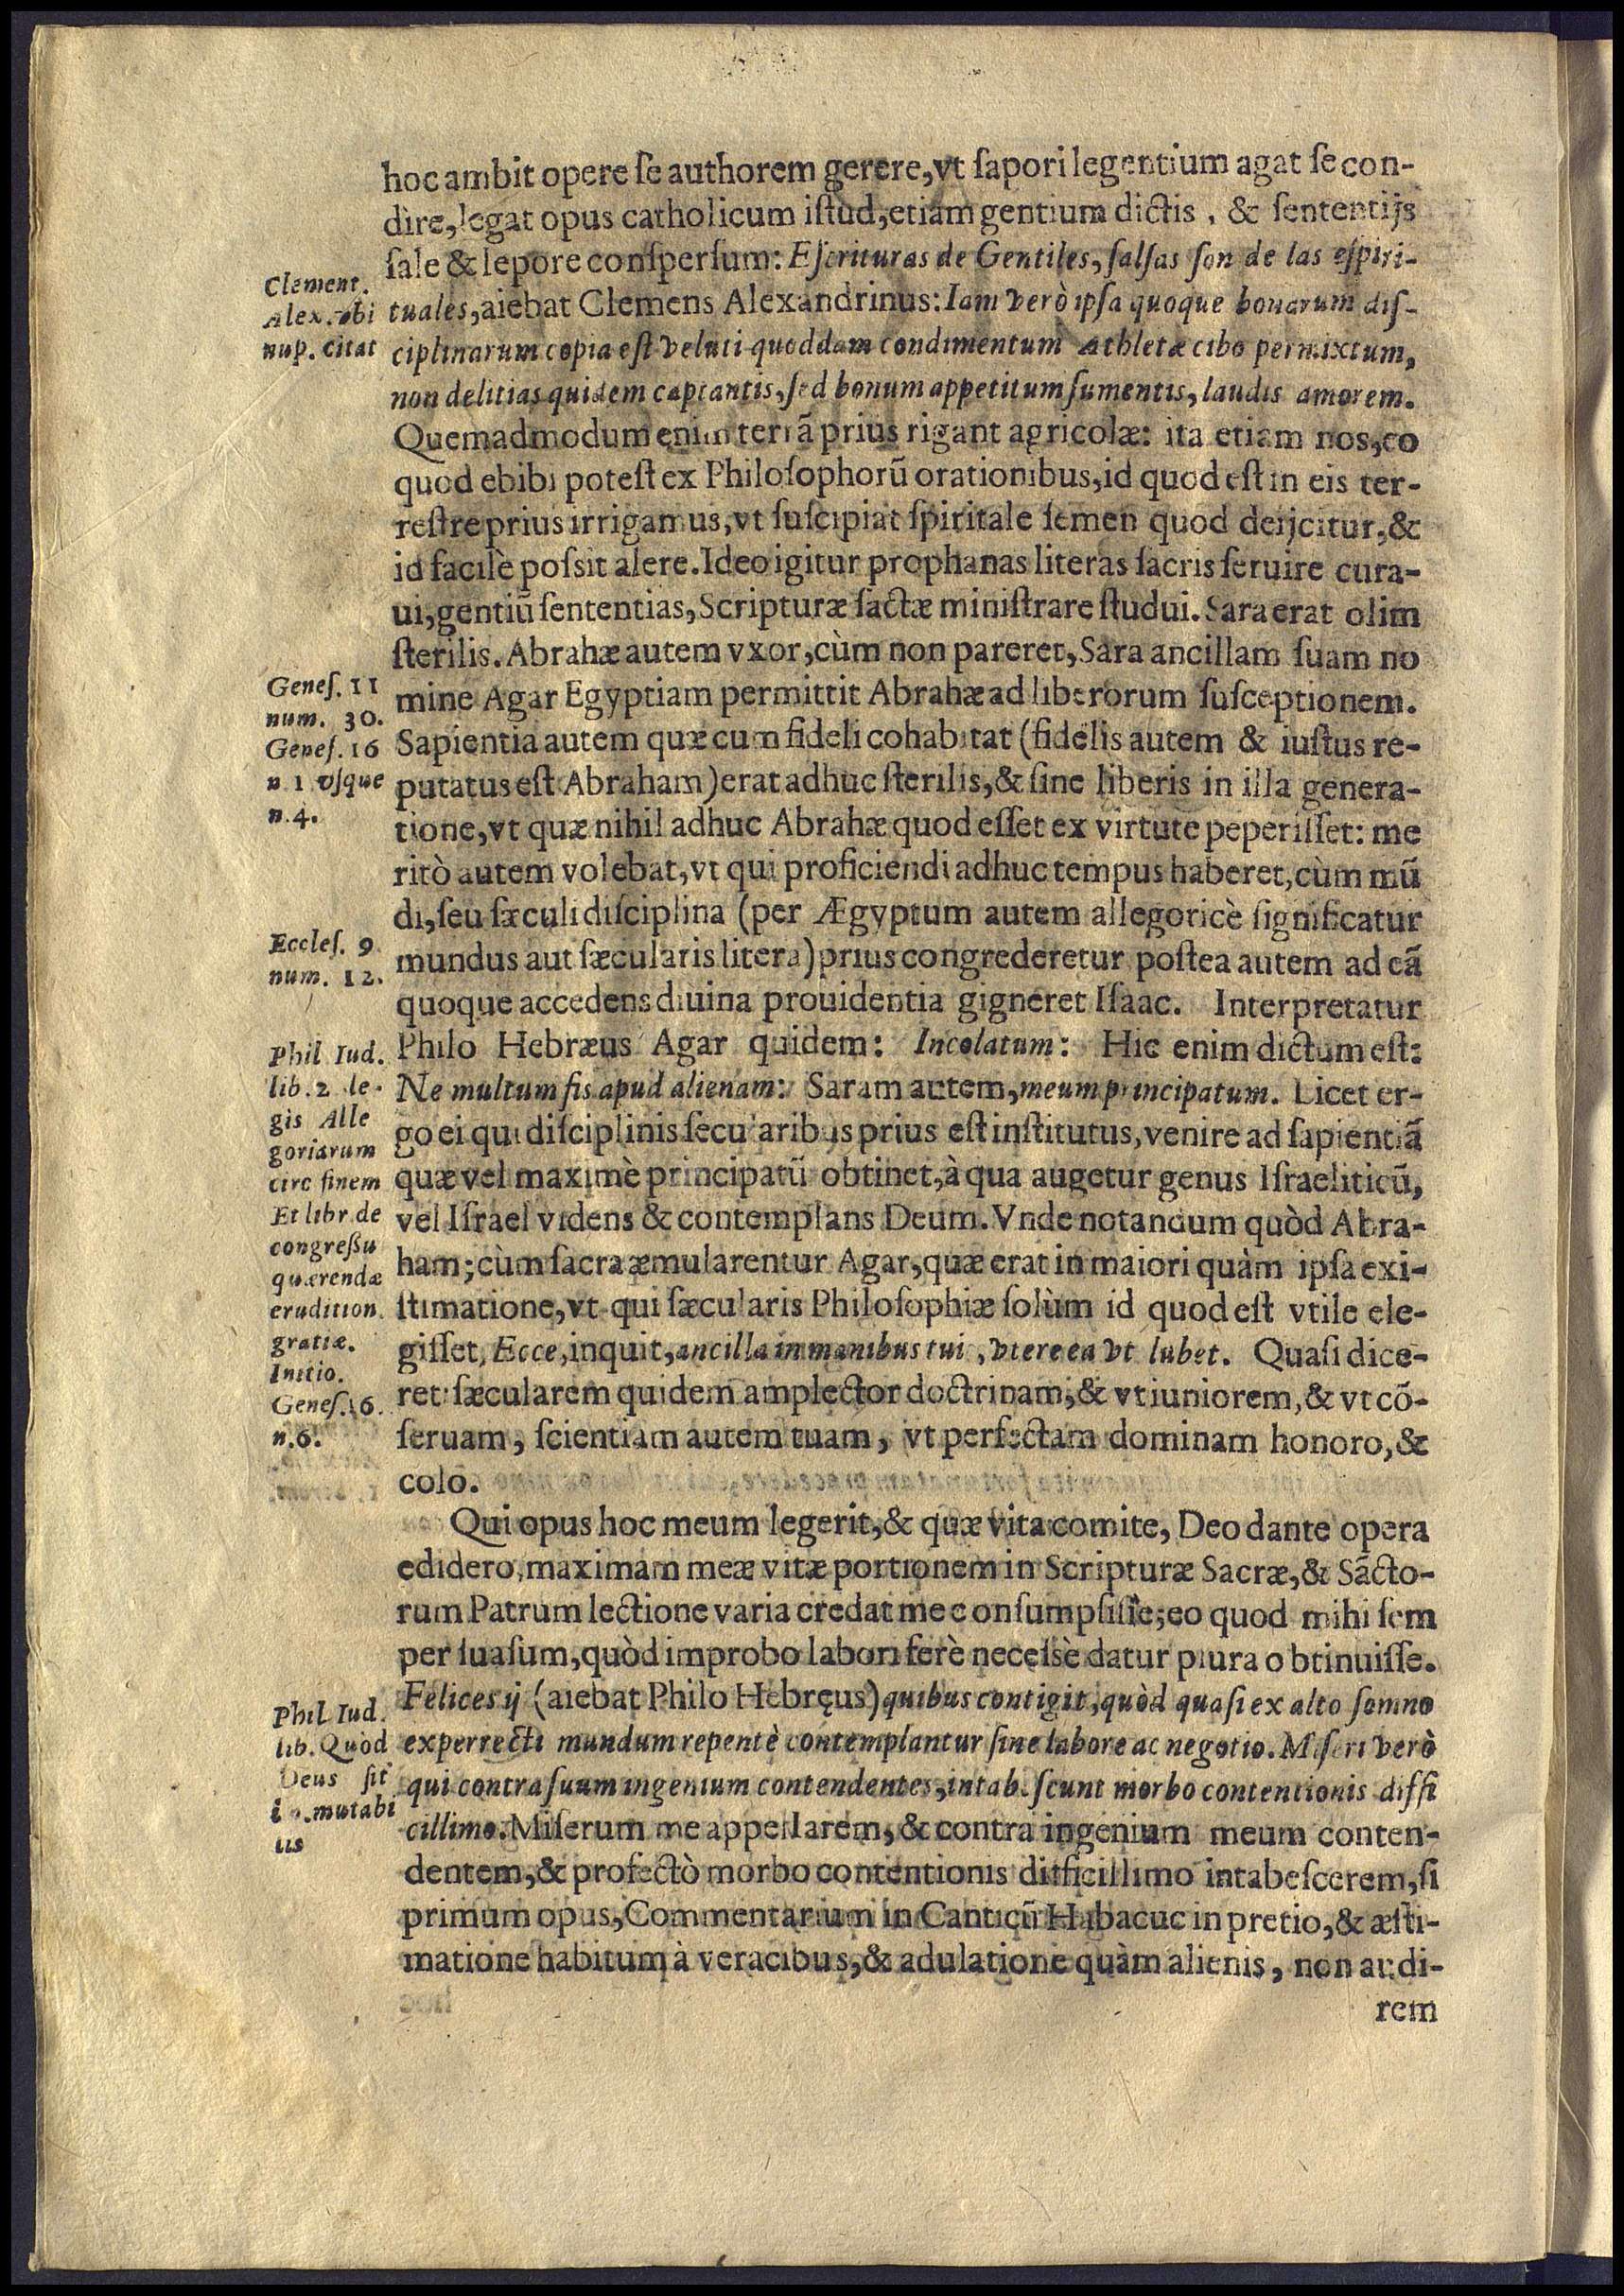 hoc ambit opere ſe authorem gerere, vt ſapori legentium agat ſe con-
dìre, legat opus catholicum iſtud, etiam gentium dictis, & ſententijs
ſale & lepore conſperſum: Eſcrituras de Gentiles, ſalſas ſon de las eſpiri-
Clement.
Alex. vbi
nup. citat
tuales, aiebat Clemens Alexandrinus: Iam verò ipſa quoque bonarum diſ-
ciplinarum copia eſt veluti quoddam condimentum Athletæ cibo permixtum,
non delitias quidem captantis, ſed bonum appetitum ſumentis, laudis amorem.
Quemadmodum enim terrã prius rigant agricolæ: ita etiam nos, eo
quod ebibi poteſt ex Philoſophorũ orationibus, id quod eſt in eis ter-
reſtre prius irrigamus, vt ſuſcipiat ſpiritale ſemen quod deijcitur, &
id facilè poſsit alere. Ideo igitur prophanas literas ſacris ſeruire cura-
ui, gentiũ ſententias, Scripturæ ſactæ miniſtrare ſtudui. Sara erat olim
ſterilis. Abrahæ autem vxor, cùm non pareret, Sara ancillam ſuam no
Geneſ. 11
num. 30.
Geneſ. 16
n 1 vſque
n.4.
mine Agar Egyptiam permittit Abrahæ ad liberorum ſuſceptionem.
Sapientia autem quæ cum fideli cohabitat (fidelis autem & iuſtus re-
putatus eſt Abraham) erat adhuc ſterilis, & ſine liberis in illa genera-
tione, vt quæ nihil adhuc Abrahæ quod eſſet ex virtute peperiſſet: me
ritò autem volebat, vt qui proficiendi adhuc tempus haberet, cùm mũ
di, ſeu ſæculi diſciplina (per Ægyptum autem allegoricè ſignificatur
Eccleſ. 9
num. 12.
mundus aut ſæcularis litera) prius congrederetur poſtea autem ad eã
quoque accedens diuina prouidentia gigneret Iſaac. Interpretatur
Phil Iud.
lib. 2 le-
gis Alle
goriarum
circ finem
Et libr de
congreßu
quærendæ
erudition
gratiæ.
Initio.
Geneſ. 16.
n.6.
Philo Hebræus Agar quidem: Incolatum: Hic enim dictum eſt:
Ne multum ſis apud alienam: Saram autem, meum principatum. Licet er-
go ei qui diſciplinis ſecularibus prius eſt inſtitutus, venire ad ſapientiã
quæ vel maximè principatũ obtinet, à qua augetur genus Iſraeliticũ,
vel Iſrael videns & contemplans Deum. Vnde notandum quòd Abra-
ham; cùm ſacra æmularentur Agar, quæ erat in maiori quàm ipſa exi-
ſtimatione, vt qui ſæcularis Philoſophiæ ſolùm id quod eſt vtile ele-
giſſet, Ecce, inquit, ancilla in manibus tui, vtere ea vt lubet. Quaſi dice-
ret: ſæcularem quidem amplector doctrinam, & vt iuniorem, & vt cõ-
ſeruam, ſcientiam autem tuam, vt perfectam dominam honoro, &
colo.
Qui opus hoc meum legerit, & quæ vita comite, Deo dante opera
edidero, maximam meæ vitæ portionem in Scripturæ Sacræ, & Sãcto-
rum Patrum lectione varia credat me conſumpſiſſe; eo quod mihi ſem
per ſuaſum, quòd improbo labori ferè neceſsè datur plura obtinuiſſe.
Phil Iud.
lib. Quòd
Deus ſit
im mutabi
lis
Felices ij (aiebat Philo Hebręus) quibus contigit, quòd quaſi ex alto ſomno
experrecti mundum repentè contemplantur ſine labore ac negotio. Miſeri verò
qui contra ſuum ingenium contendentes, intabeſcunt morbo contentionis diffi
cillimo. Miſerum me appellarem, & contra ingenium meum conten-
dentem, & profectò morbo contentionis difficillimo intabeſcerem, ſi
primum opus, Commentarium in Canticũ Habacuc in pretio, & æſti-
matione habitum à veracibus, & adulatione quàm alienis, non audi-
rem